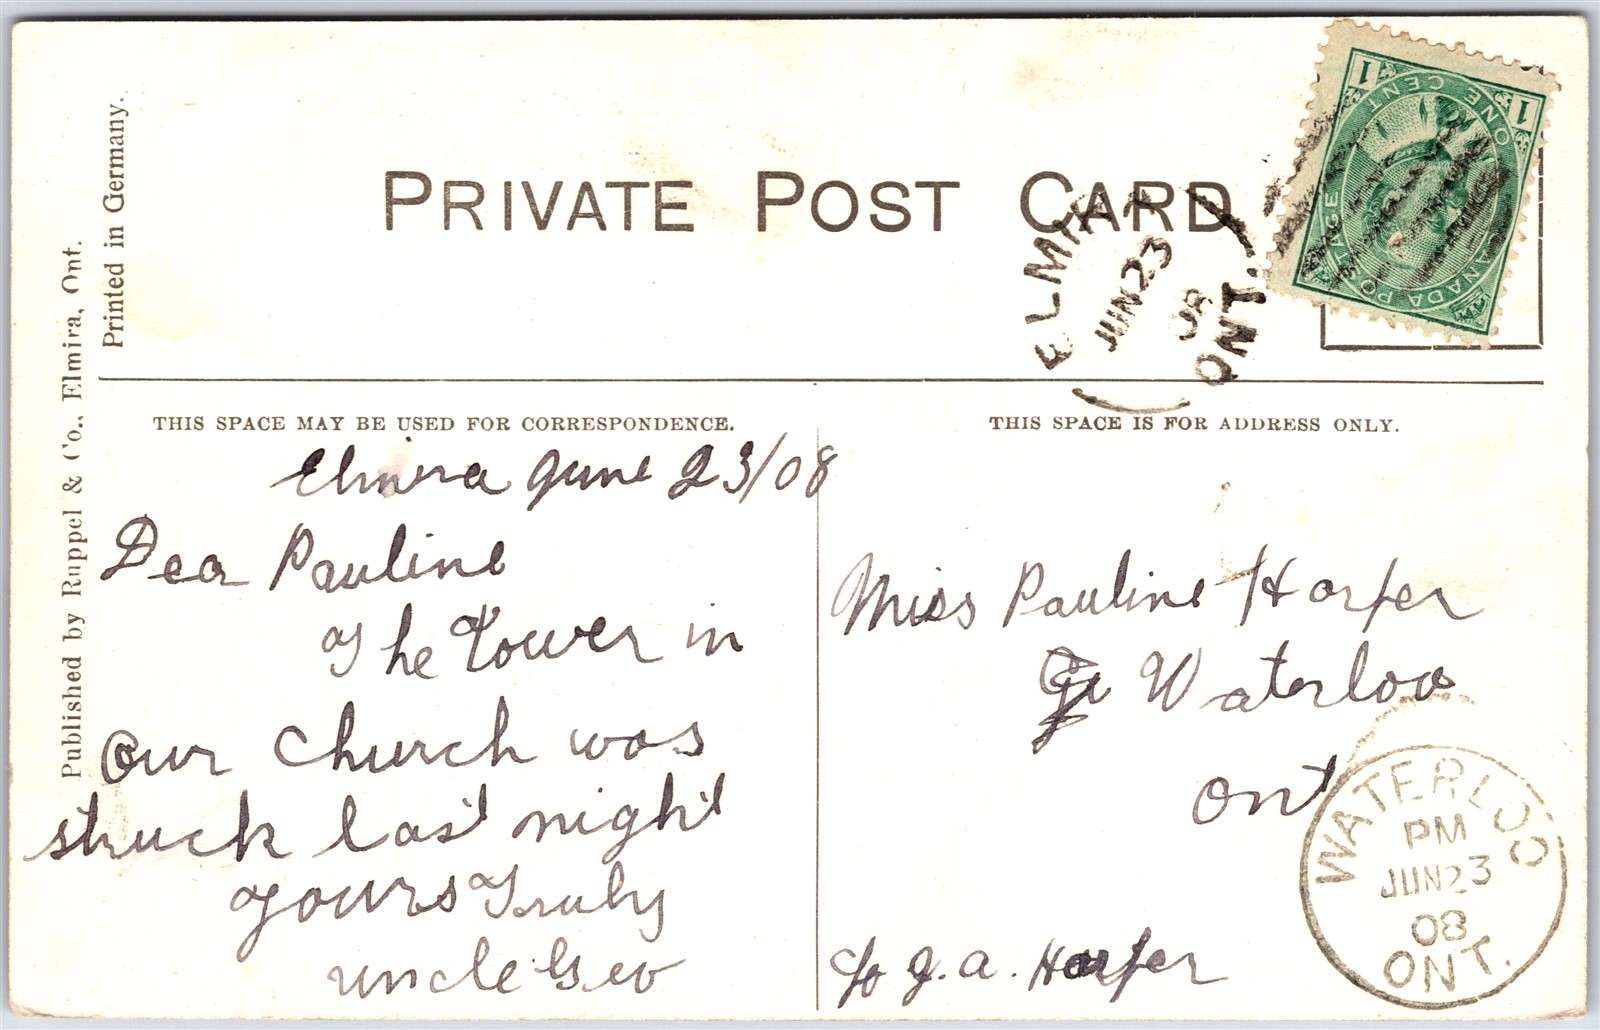 PRIVATE POST CARD
Printed in Germany.
Published by Ruppel & Co., Elmira, Ont.
ONE CENT
1 1
CANADA POSTAGE
ELMIRA
JUN 23
08
ONT.
THIS SPACE MAY BE USED FOR CORRESPONDENCE.
THIS SPACE IS FOR ADDRESS ONLY.
Elmira June 23/08
Dear Pauline
The Tower in
Our Church was
struck last night
Yours Truly
Uncle Geo
Miss Pauline Harper
Waterloo
Ont
c/o J. A. Harper
WATERLOO
PM
JUN 23
08
ONT.